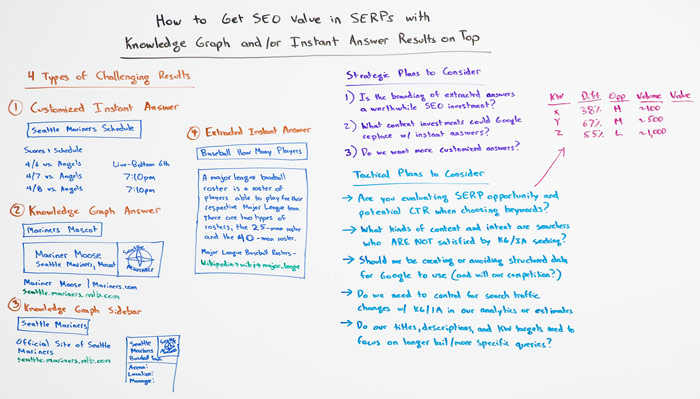 How to Get SEO Value in SERPs with
Knowledge Graph and/or Instant Answer Results on Top
4 Types of Challenging Results
1 Customized Instant Answer
Seattle Mariners Schedule
Scores + Schedule
4/6 vs. Angels Live-Bottom 6th
4/7 vs. Angels 7:10pm
4/8 vs. Angels 7:10pm
2 Knowledge Graph Answer
Mariners Mascot
Mariner Moose
Seattle Mariners, Mascot
Seattle
Mariners
Mariner Moose | Mariners.com
seattle.mariners.mlb.com
3 Knowledge Graph Sidebar
Seattle Mariners
Official Site of Seattle
Mariners
seattle.mariners.mlb.com
Seattle
Mariners
Baseball Team
Arena:
Location:
Manager:
4 Extracted Instant Answer
Baseball How Many Players
A major league baseball
roster is a roster of
players able to play for their
respective Major League team.
there are two types of
rosters, the 25-man roster
and the 40-man roster.
Major League Baseball Rosters -
Wikipedia > wiki > major_league
Strategic Plans to Consider
1) Is the branding of extracted answers
a worthwhile SEO investment?
2) What content investments could Google
replace w/ instant answers?
3) Do we want more customized answers?
Tactical Plans to Consider
→ Are you evaluating SERP opportunity and
potential CTR when choosing keywords?
→ What kinds of content and intent are searchers
who ARE NOT satisfied by KG/IA seeking?
→ Should we be creating or avoiding structured data
for Google to use (and will our competition?)
→ Do we need to control for search traffic
changes w/ KG/IA in our analytics or estimates
→ Do our titles, descriptions, and KW targets need to
focus on longer tail/more specific queries?
KW Diff Opp Volume Value
X 38% H ~100
Y 67% M ~500
Z 55% L ~1,000